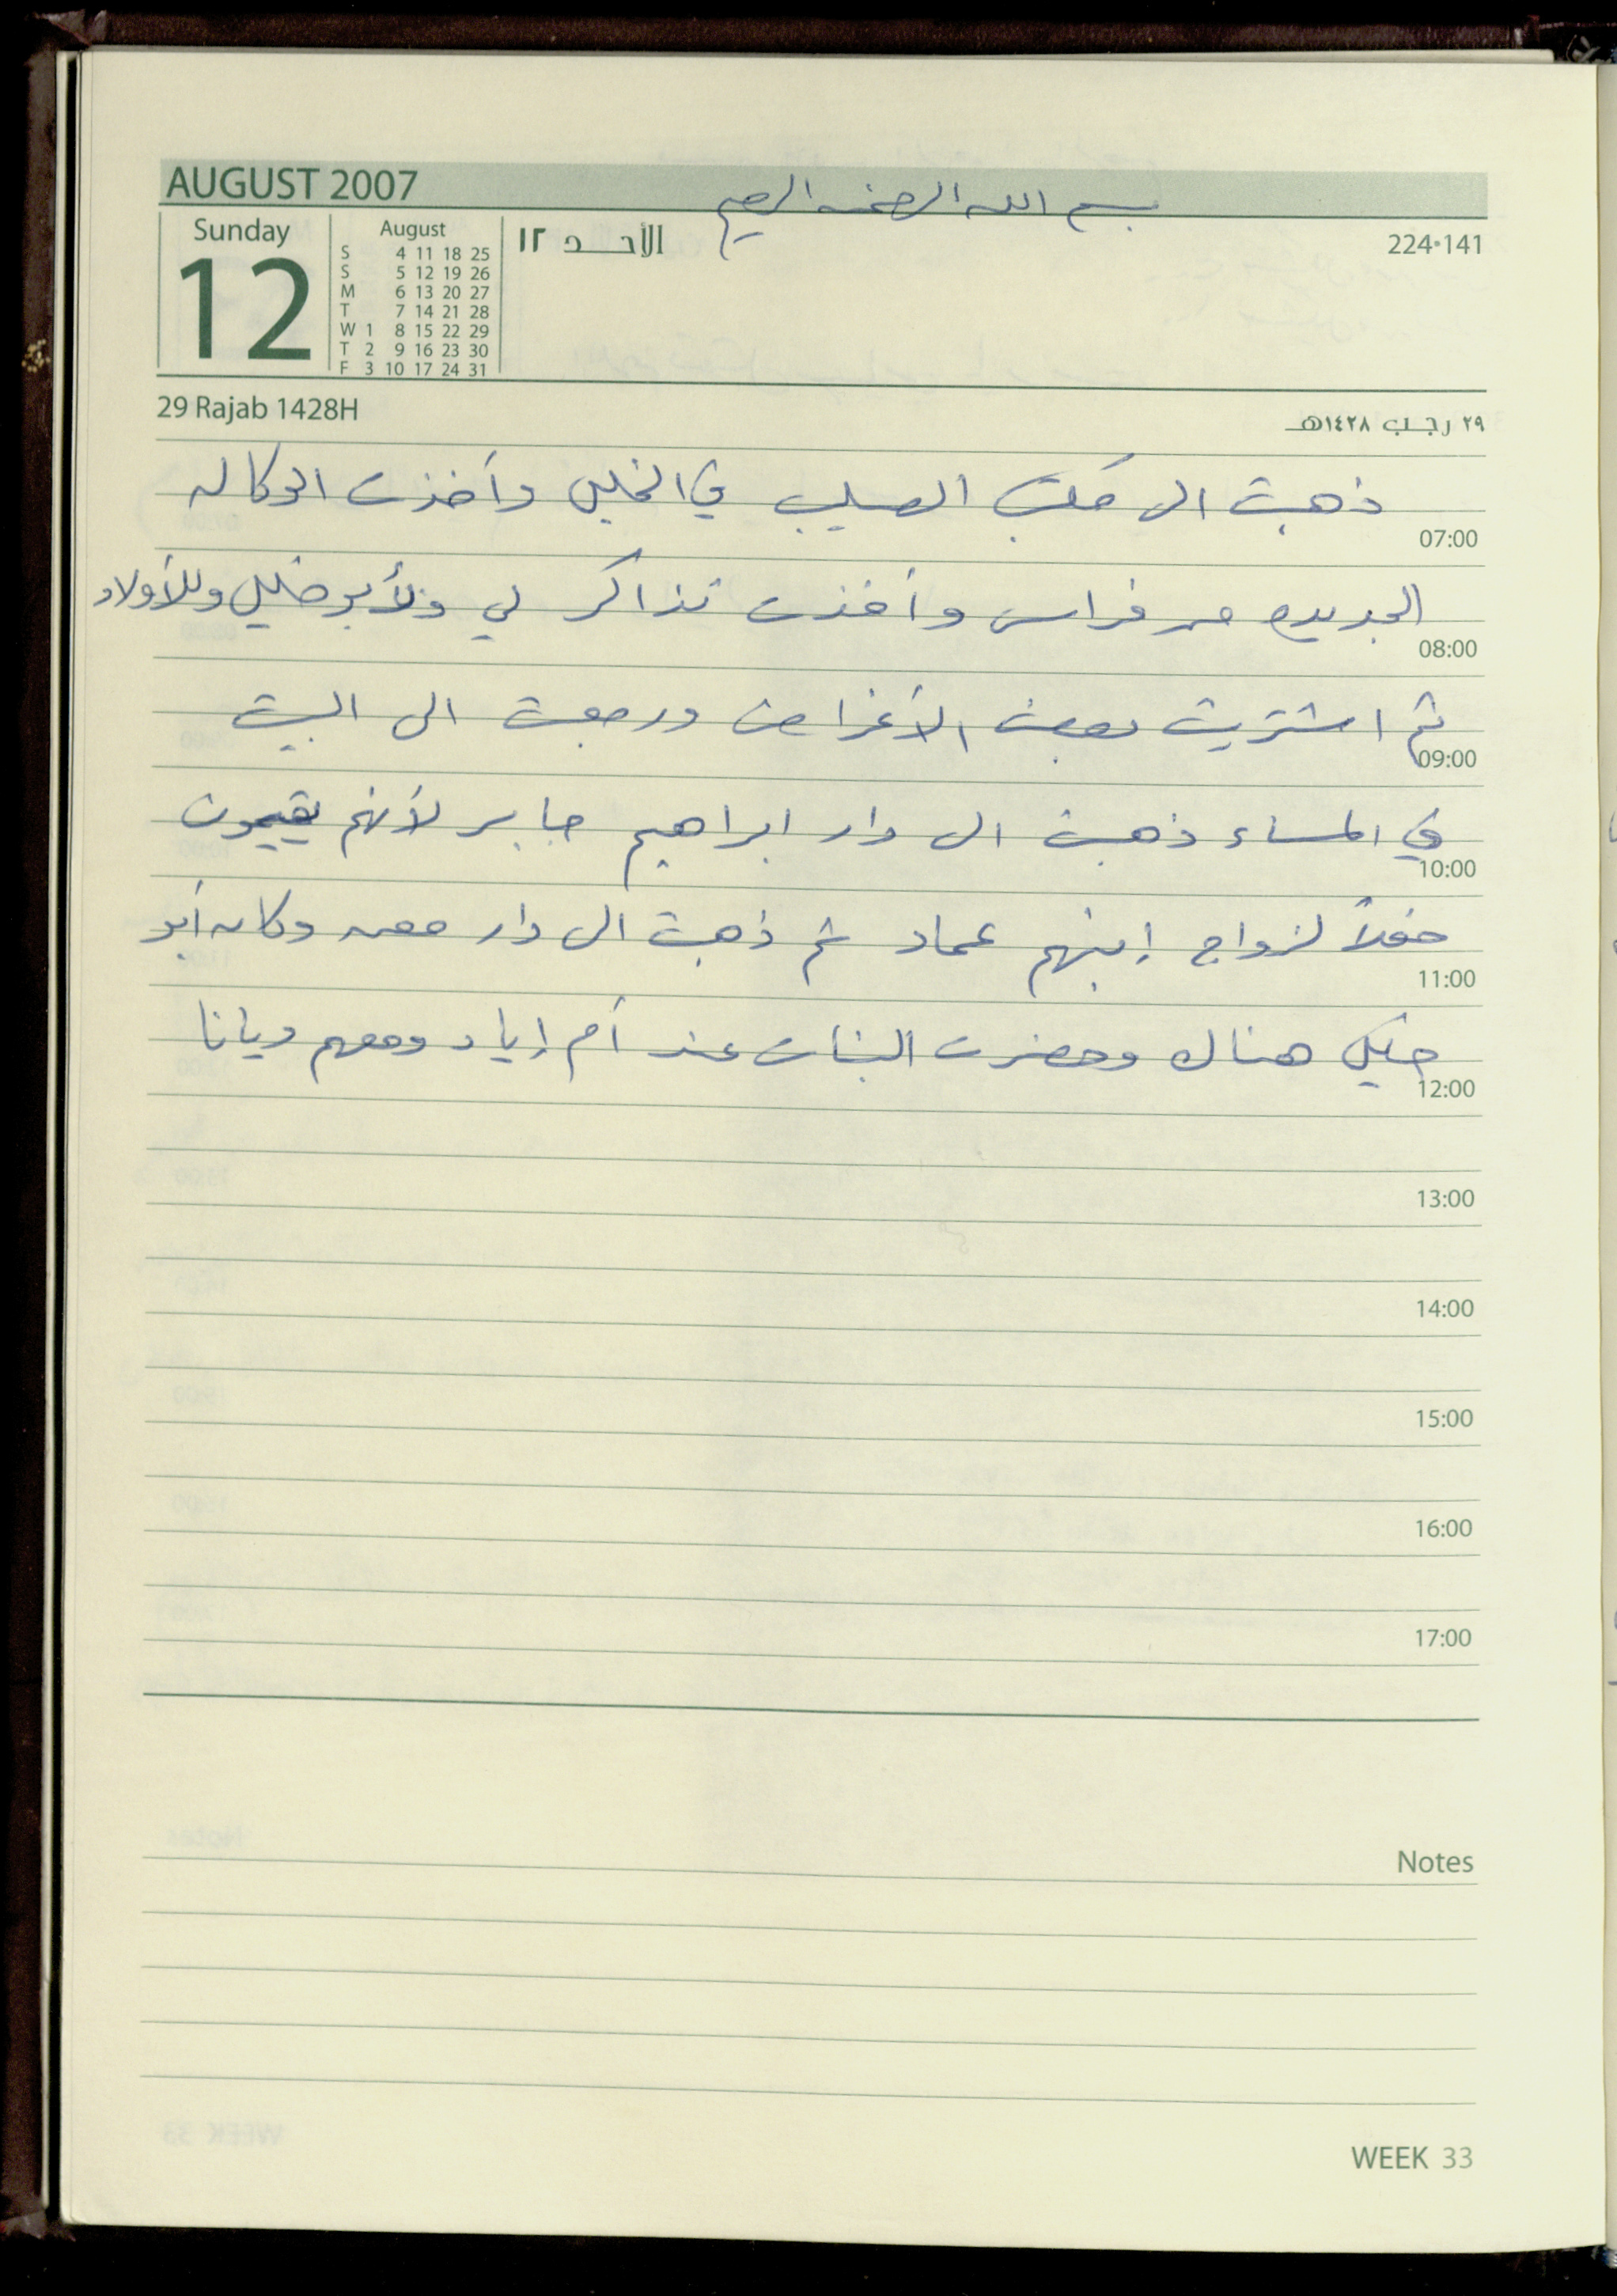 AUGUST 2007
بسم الله الرحمن الرحيم
Sunday
12
August
S 4 11 18 25
S 5 12 19 26
M 6 13 20 27
T 7 14 21 28
W 1 8 15 22 29
T 2 9 16 23 30
F 3 10 17 24 31
الأحد ١٢
224•141
29 Rajab 1428H
٢٩ رجب ١٤٢٨هـ
ذهبت الى مكتب الصليب في الخليل وأخذت الوكاله
07:00
الجديده من فراس وأخذت تذاكر لي ولأبو خليل وللأولاد
08:00
ثم اشتريت بعض الأغراض ورجعت الى البيت
09:00
في المساء ذهبت الى دار ابراهيم جابر لأنهم يقيمون
10:00
حفلاً لزواج إبنهم عماد ثم ذهبت الى دار معن وكان أبو
11:00
خليل هناك وحضرت البنات عند أم إياد ومعهم ديانا
12:00
13:00
14:00
15:00
16:00
17:00
Notes
WEEK 33